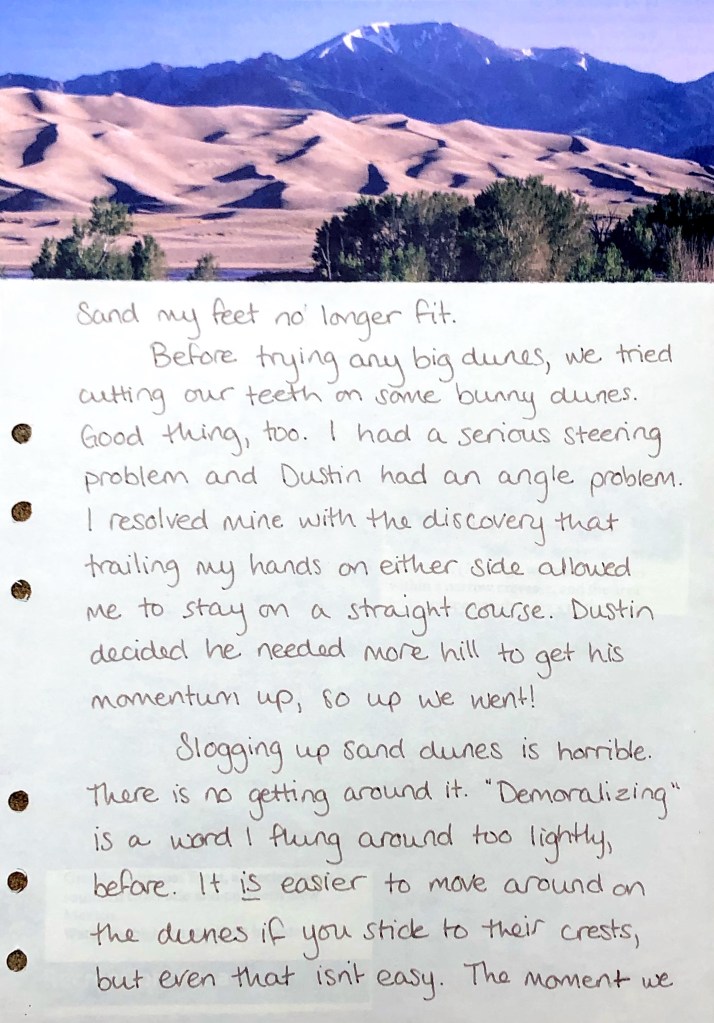 Sand my feet no longer fit.
Before trying any big dunes, we tried
cutting our teeth on some bunny dunes.
Good thing, too. I had a serious steering
problem and Dustin had an angle problem.
I resolved mine with the discovery that
trailing my hands on either side allowed
me to stay on a straight course. Dustin
decided he needed more hill to get his
momentum up, so up we went!
Slogging up sand dunes is horrible.
There is no getting around it. "Demoralizing"
is a word I flung around too lightly,
before. It is easier to move around on
the dunes if you stick to their crests,
but even that isn't easy. The moment we